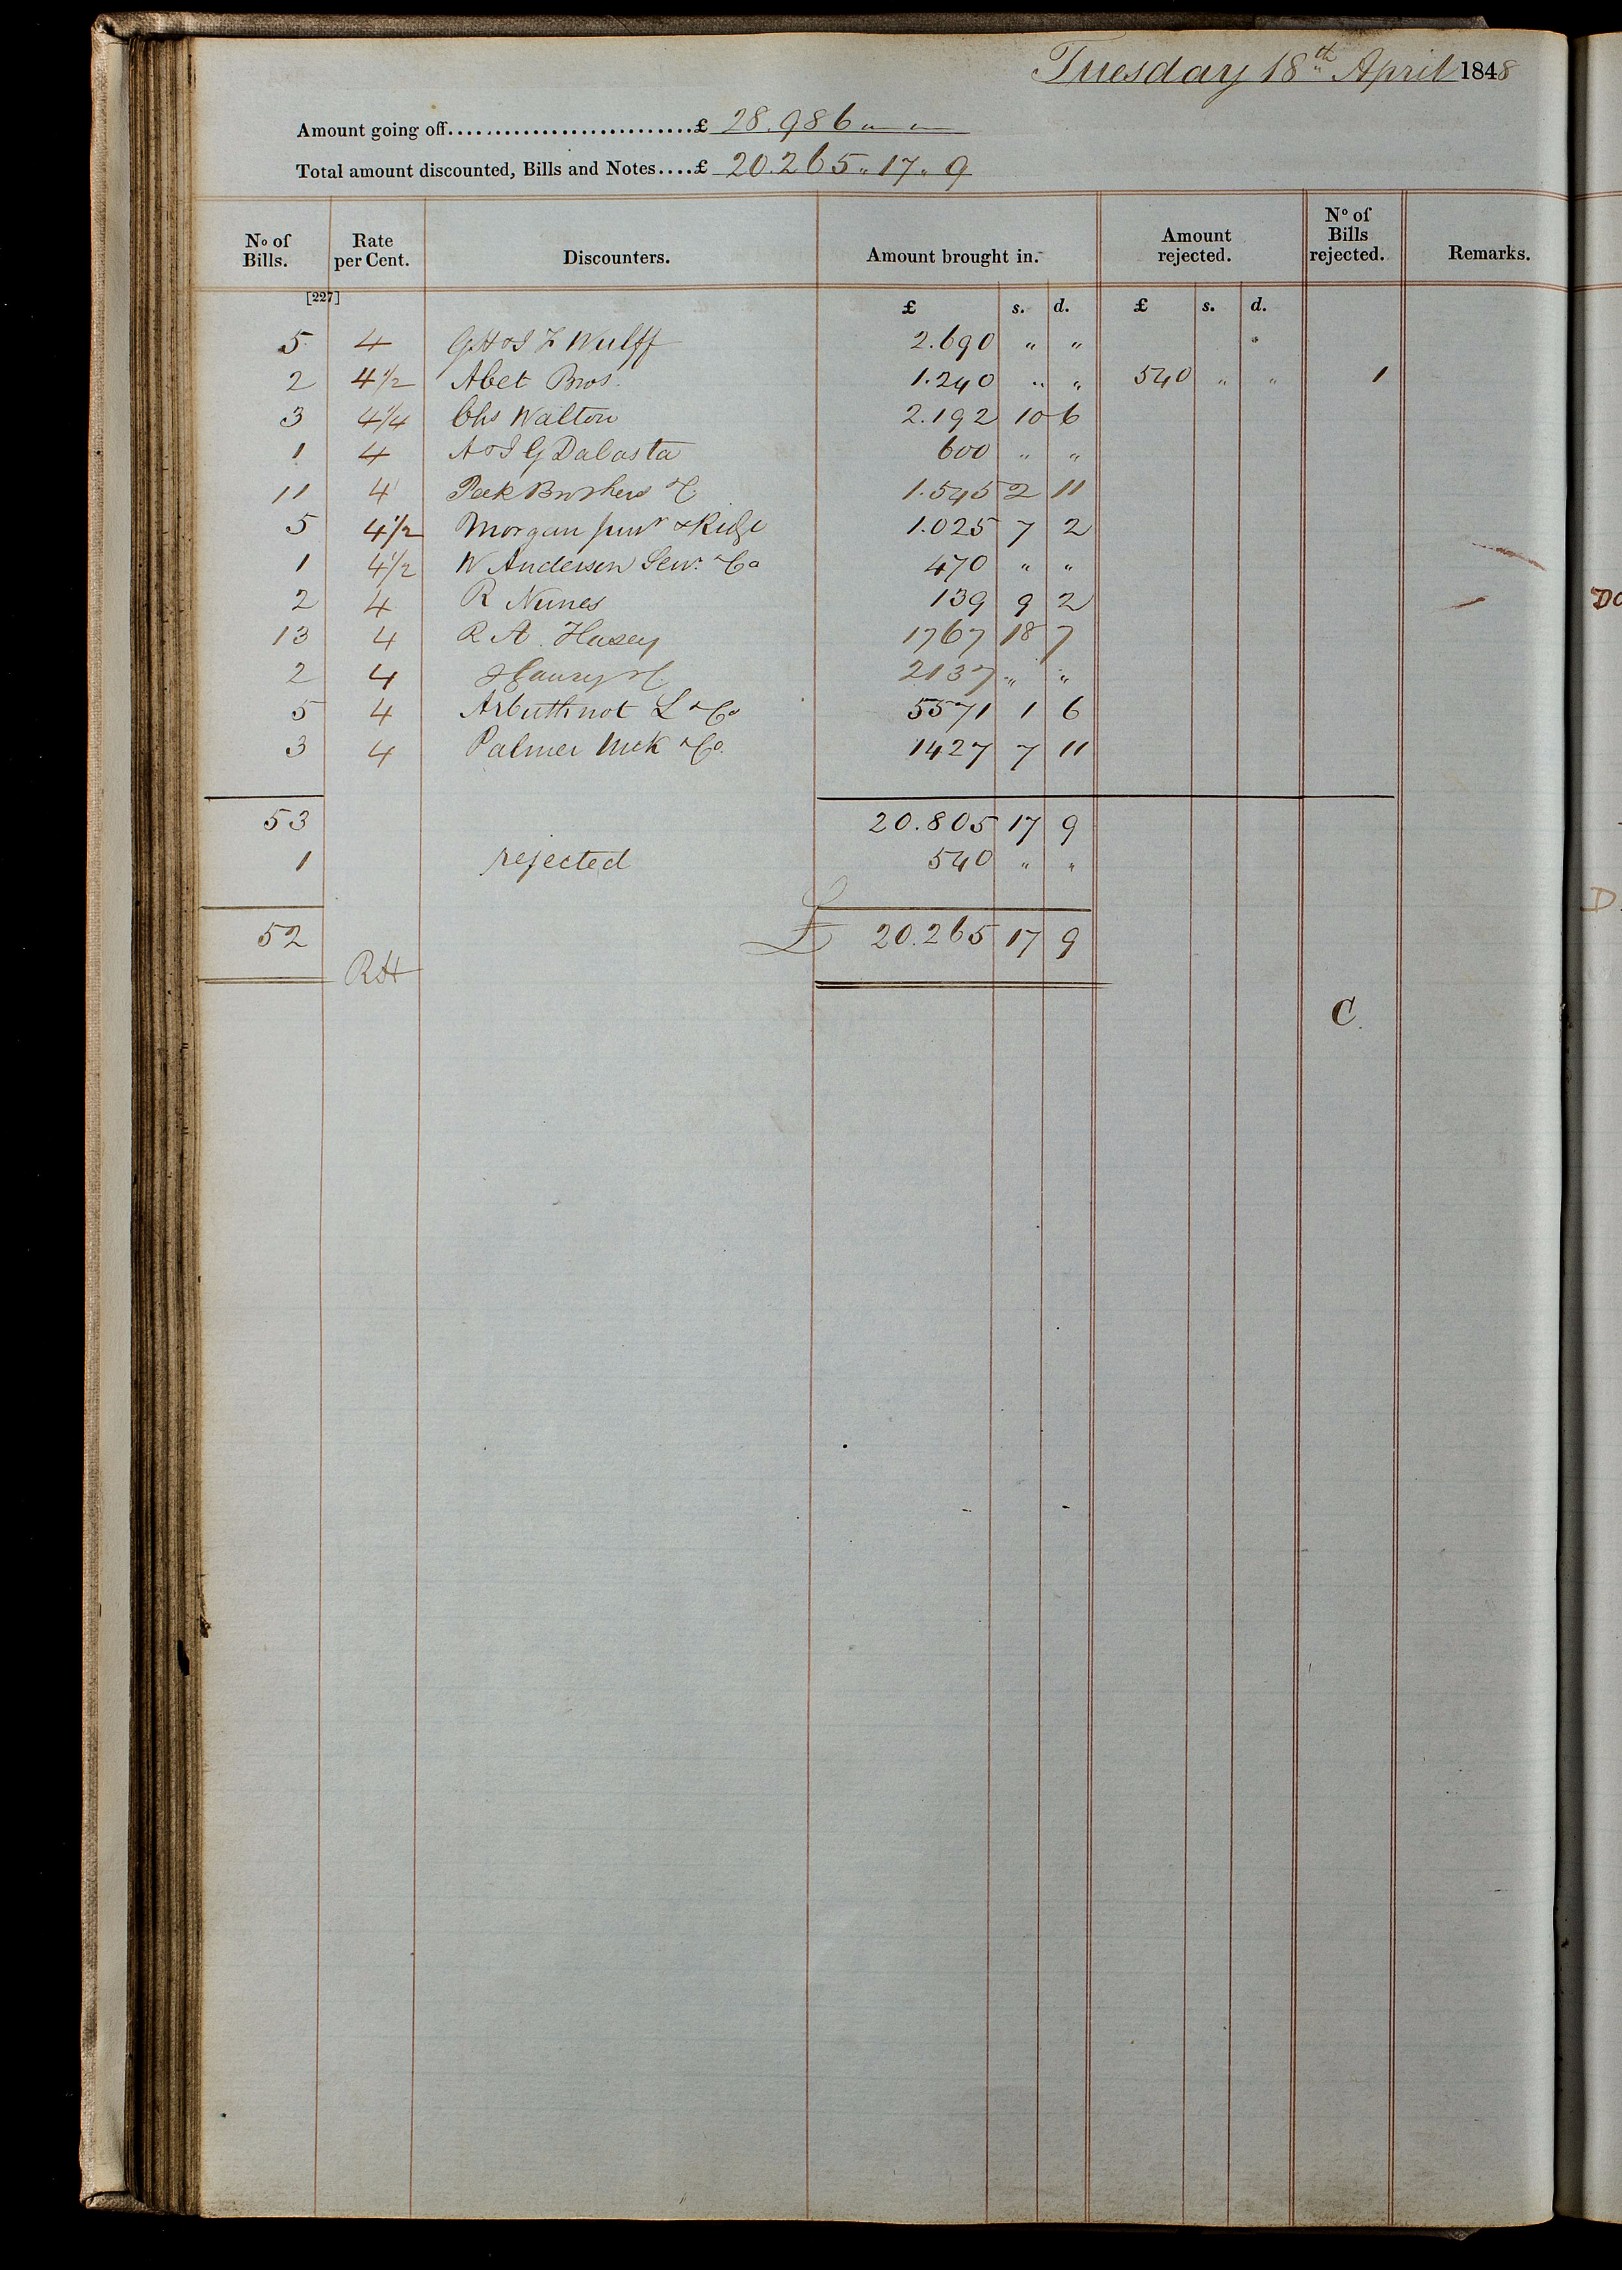 Tuesday 18th April 1848
Amount going off..........................£ 28.986 " "
Total amount discounted, Bills and Notes....£ 20.265 " 17 " 9
No of Bills. Rate per Cent. Discounters. Amount brought in. Amount rejected. No of Bills rejected. Remarks.
[227] £ s. d. £ s. d.
5 4 G H & I F Wulff 2.690 " "
2 4 1/2 Abet Bros. 1.240 " " 540 " " 1
3 4 1/4 Chs Walton 2.192 10 6
1 4 A & I G Dalasta 600 " "
11 4 Peek Brothers & C 1.545 2 11
5 4 1/2 Morgan junr & Ridge 1.025 7 2
1 4 1/2 W Anderson Senr. & Co 470 " "
2 4 R Nunes 139 9 2
13 4 R A 1767 18 7
2 4 2137 " "
5 4 Arbuthnot L & Co 5571 1 6
3 4 Palmer McK & Co. 1427 7 11
53 20.805 17 9
1 rejected 540 " "
52 £ 20.265 17 9
RH
C.